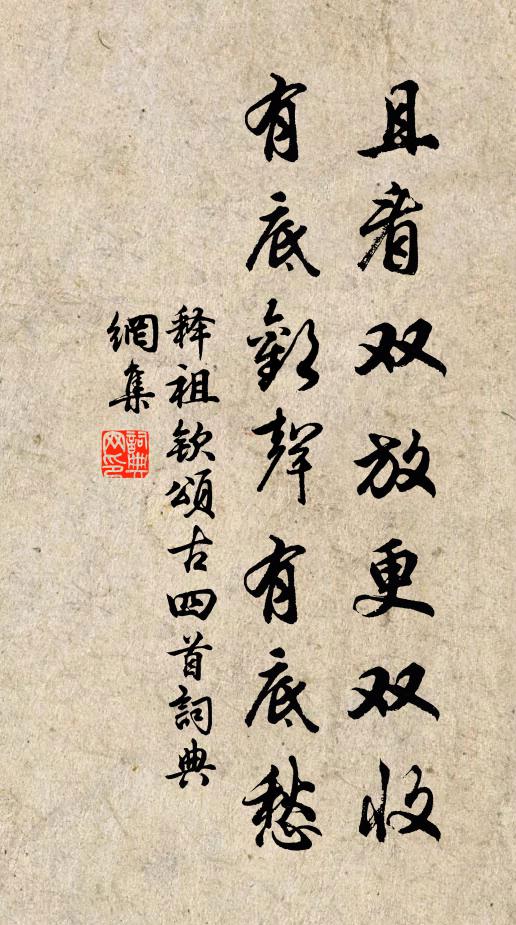 且看双放更双收
有底歡聲有底愁
释祖钦頌古四首詞典
網集
詞典
网印